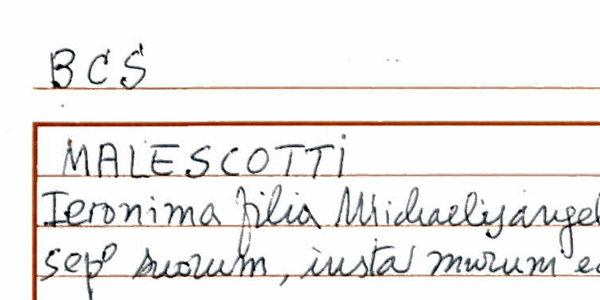 BCS
MALESCOTTI
Ieronima filia Michaelisangel
sepº suorum, iusta murum